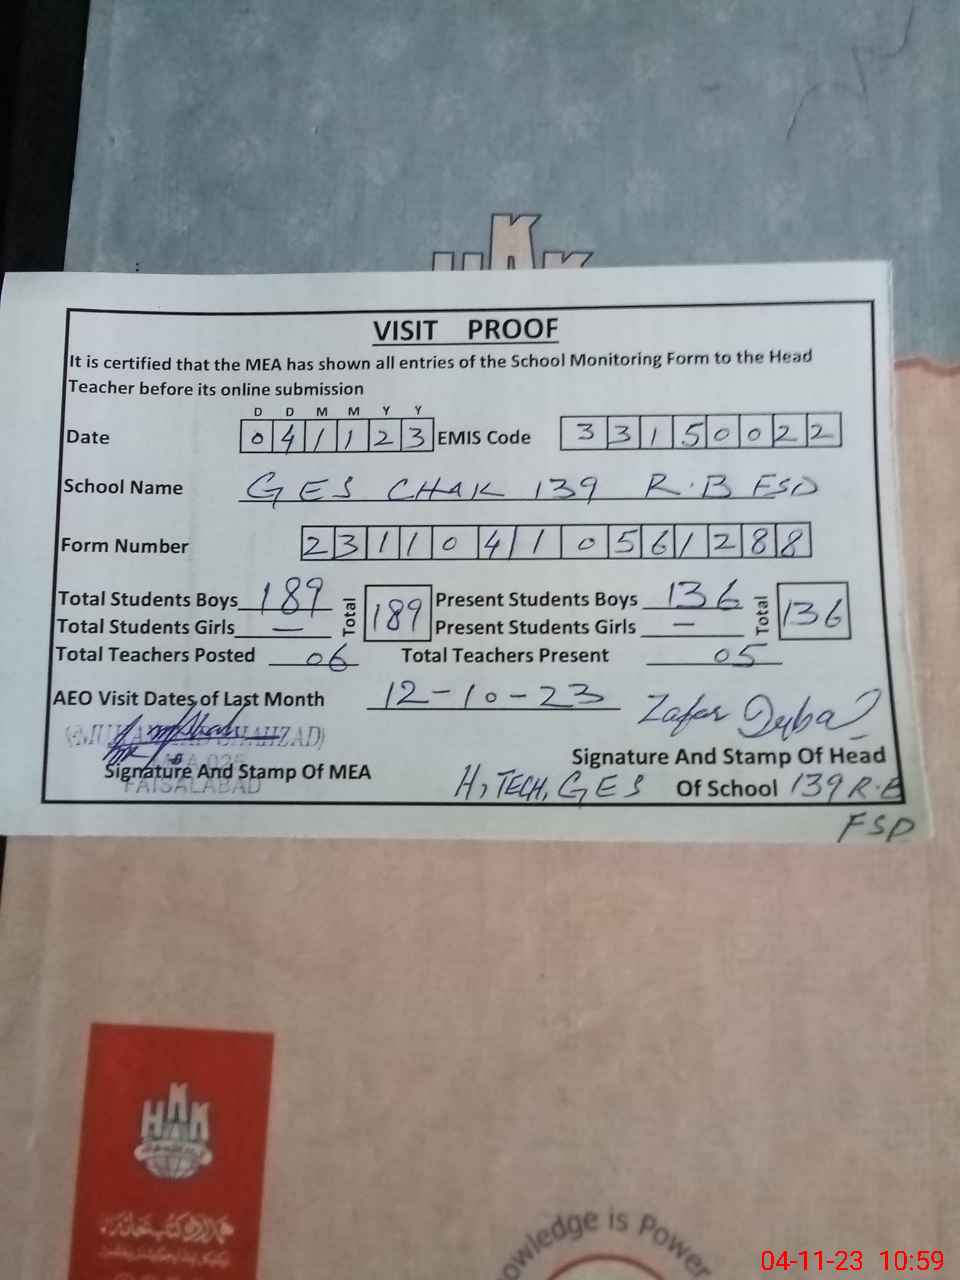 HAK
VISIT PROOF
It is certified that the MEA has shown all entries of the School Monitoring Form to the Head
Teacher before its online submission
D D M M Y Y
Date 0 4 1 1 2 3 EMIS Code 3 3 1 5 0 0 2 2
School Name GES CHAK 139 R.B FSD
Form Number 2 3 1 1 0 4 1 0 5 6 1 2 8 8
Total Students Boys 189 Total 189 Present Students Boys 136 Total 136
Total Students Girls — Present Students Girls —
Total Teachers Posted 06 Total Teachers Present 05
AEO Visit Dates of Last Month 12-10-23
Zafar Iqbal
SHAHZAD)
Signature And Stamp Of MEA
FAISALABAD
Signature And Stamp Of Head
H, TECH, GES Of School 139 R.B
FSD
HAK
Knowledge is Power
04-11-23 10:59